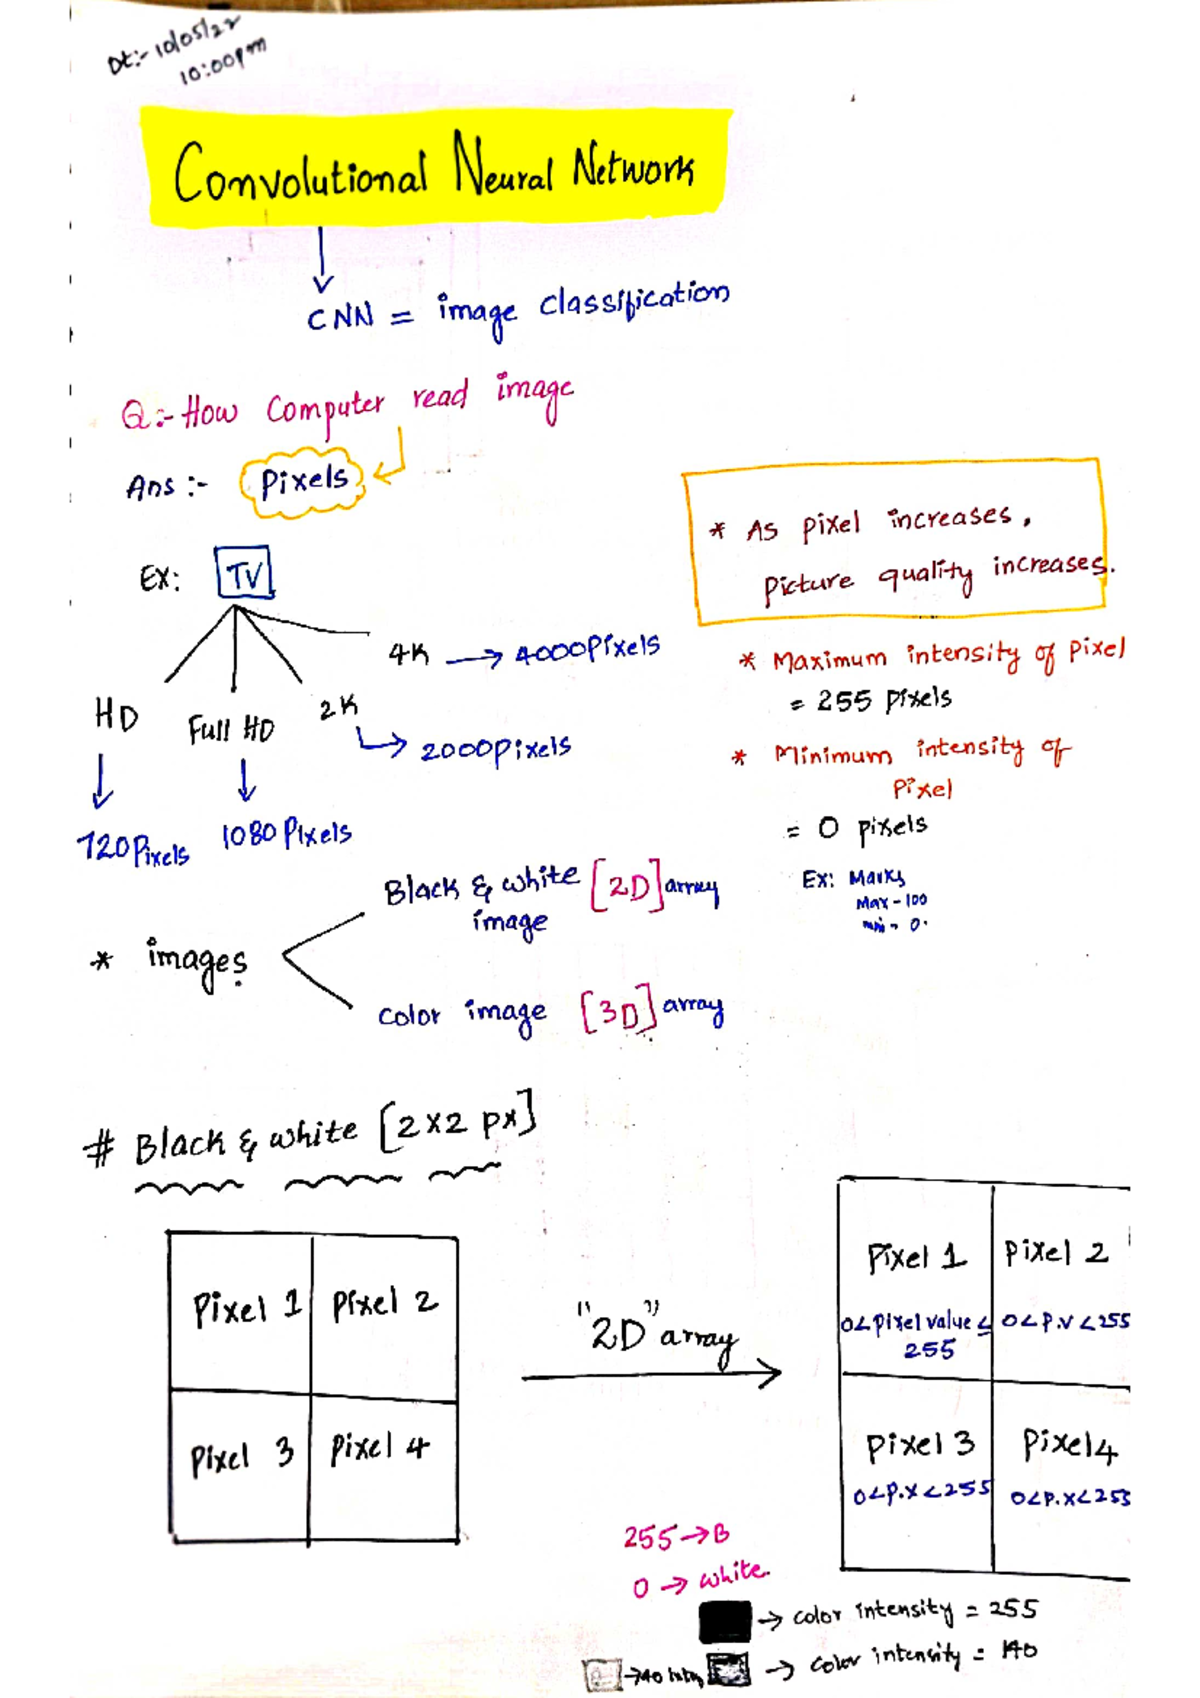 Dt:- 10/05/22
10:00pm
Convolutional Neural Network
CNN = image classification
Q:- How Computer read image
Ans :- Pixels
* As pixel increases,
picture quality increases.
Ex: TV
4K → 4000 Pixels
HD Full HD 2K
→ 2000 pixels
720 Pixels 1080 Pixels
* Maximum intensity of pixel
= 255 pixels
* Minimum intensity of
Pixel
= 0 pixels
Ex: Marks
Max - 100
min - 0.
* images
Black & white [2D] array
image
Color image [3D] array
# Black & white [2x2 px]
Pixel 1 Pixel 2
Pixel 3 Pixel 4
"2D" array
Pixel 1 Pixel 2
0<pixel value ≤ 0<P.V<255
255
Pixel 3 Pixel 4
0<P.X<255 0<P.X<255
255 → B
0 → white.
→ color intensity = 255
→ 40 → color intensity = 140